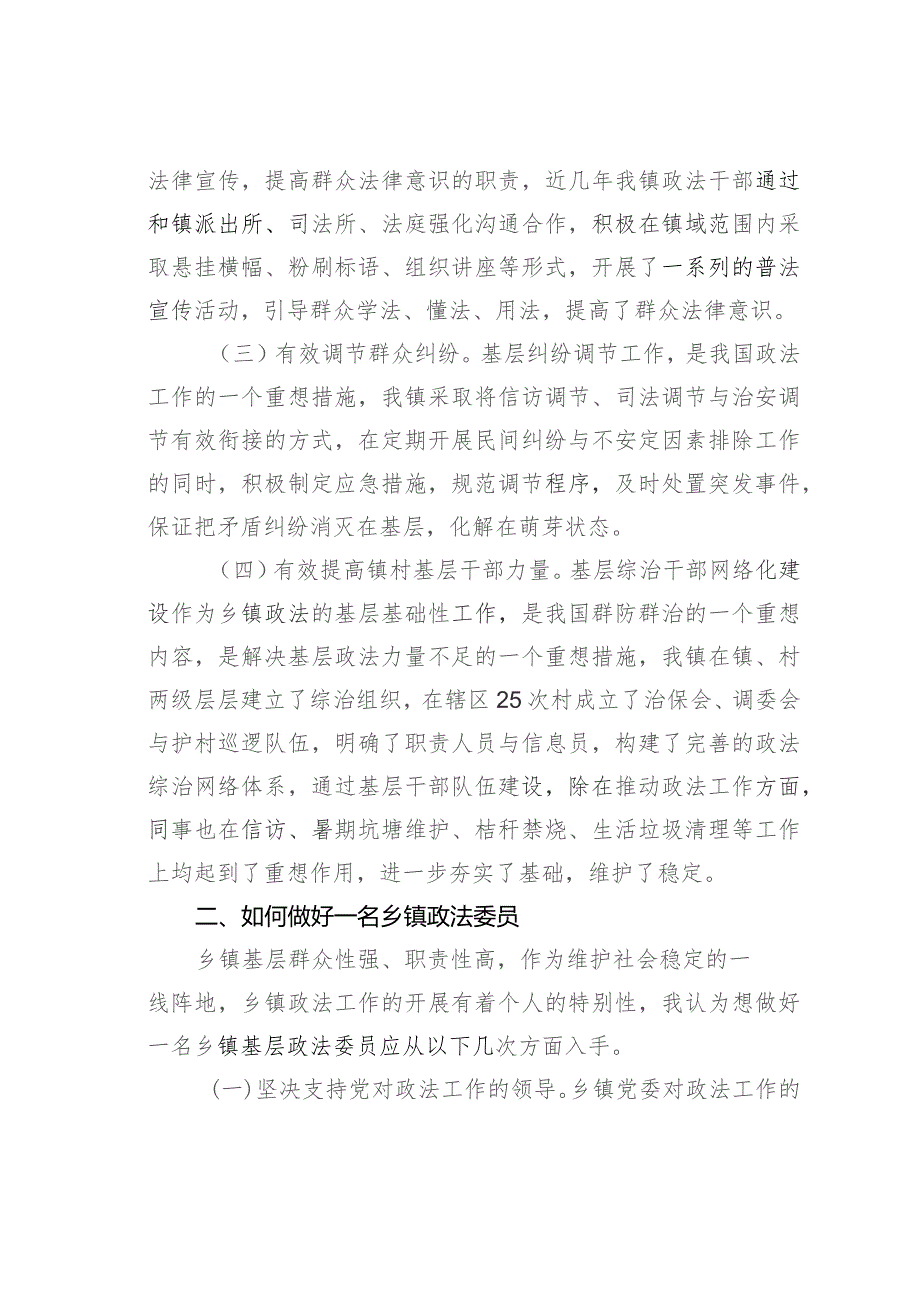 法律宣传，提高群众法律意识的职责，近几年我镇政法干部通过
和镇派出所、司法所、法庭强化沟通合作，积极在镇域范围内采
取悬挂横幅、粉刷标语、组织讲座等形式，开展了一系列的普法
宣传活动，引导群众学法、懂法、用法，提高了群众法律意识。
（三）有效调节群众纠纷。基层纠纷调节工作，是我国政法
工作的一个重想措施，我镇采取将信访调节、司法调节与治安调
节有效衔接的方式，在定期开展民间纠纷与不安定因素排除工作
的同时，积极制定应急措施，规范调节程序，及时处置突发事件，
保证把矛盾纠纷消灭在基层，化解在萌芽状态。
（四）有效提高镇村基层干部力量。基层综治干部网络化建
设作为乡镇政法的基层基础性工作，是我国群防群治的一个重想
内容，是解决基层政法力量不足的一个重想措施，我镇在镇、村
两级层层建立了综治组织，在辖区 25 次村成立了治保会、调委会
与护村巡逻队伍，明确了职责人员与信息员，构建了完善的政法
综治网络体系，通过基层干部队伍建设，除在推动政法工作方面，
同事也在信访、暑期坑塘维护、桔秆禁烧、生活垃圾清理等工作
上均起到了重想作用，进一步夯实了基础，维护了稳定。
二、如何做好一名乡镇政法委员
乡镇基层群众性强、职责性高，作为维护社会稳定的一
线阵地，乡镇政法工作的开展有着个人的特别性，我认为想做好
一名乡镇基层政法委员应从以下几次方面入手。
(一)坚决支持党对政法工作的领导。乡镇党委对政法工作的